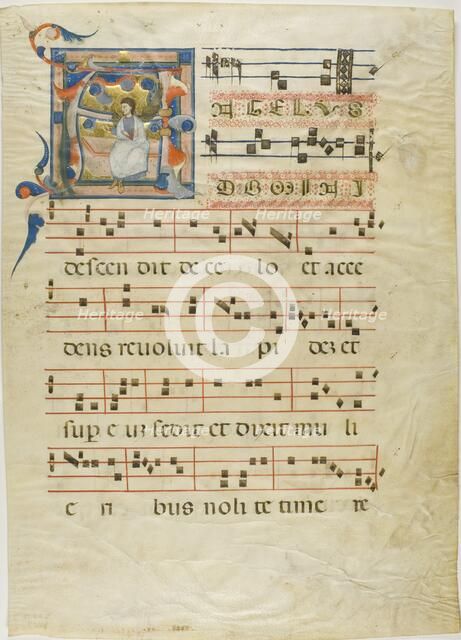 A NGELVS
DOMINI
descen dit de ce lo et acce
dens revoluit la pi dez et
sup e uz sedit et dixit mu li
e ri bus noli te time re
Heritage
Heritage
Heritage
Heritage
Heritage
Heritage
C